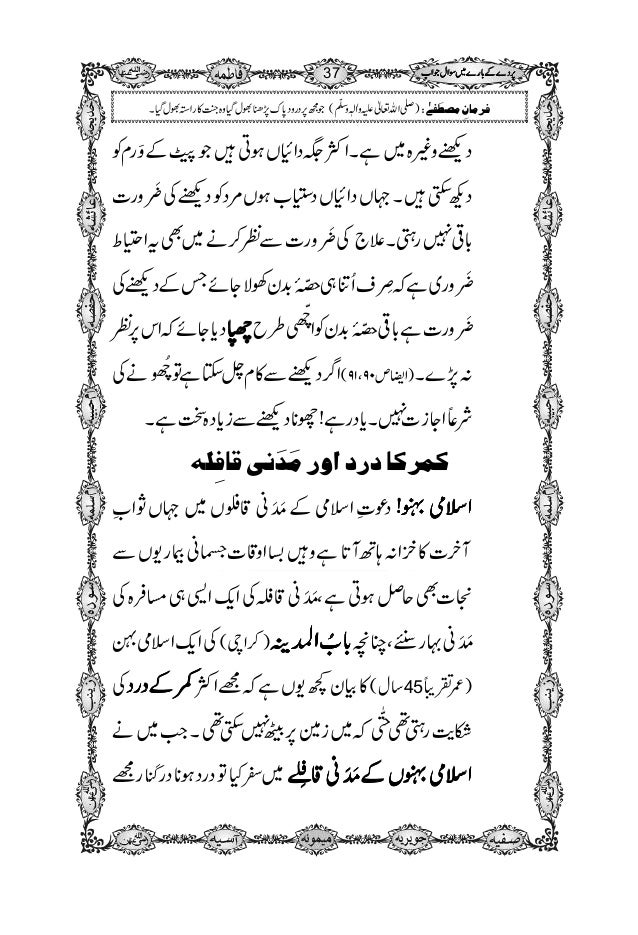 پردے کے بارے میں سوال جواب
37
فاطمہ
رضی اللہ عنہا
فرمانِ مصطفٰے : (صلی اللہ تعالیٰ علیہ والہ وسلم) جو مجھ پر درود پاک پڑھنا بھول گیا وہ جنت کا راستہ بھول گیا۔
دیکھنے وغیرہ میں ہے۔ اکثر جگہ دائیاں ہوتی ہیں جو پیٹ کے وَرم کو
دیکھ سکتی ہیں۔ جہاں دائیاں دستیاب ہوں مرد کو دیکھنے کی ضَرورت
باقی نہیں رہتی۔ علاج کی ضَرورت سے نظر کرنے میں بھی یہ احتیاط
ضَروری ہے کہ صِرف اُتنا ہی حصّۂ بدن کھولا جائے جس کے دیکھنے کی
ضَرورت ہے باقی حصّۂ بدن کو اچّھی طرح چھپا دیا جائے کہ اس پر نظر
نہ پڑے۔ (ایضاص۹۰،۹۱) اگر دیکھنے سے کام چل سکتا ہے تو چُھونے کی
شرعاً اجازت نہیں۔ یاد رہے! چھونا دیکھنے سے زیادہ سخت ہے۔
کمر کا درد اور مَدَنی قافِلہ
اسلامی بہنو! دعوتِ اسلامی کے مَدَنی قافلوں میں جہاں ثوابِ
آخرت کا خزانہ ہاتھ آتا ہے وہیں بسا اوقات جسمانی بیماریوں سے
نجات بھی حاصل ہوتی ہے، مَدَنی قافلہ کی ایک ایسی ہی مسافرہ کی
مَدَنی بہار سنئے، چنانچہ بابُ المدینہ (کراچی) کی ایک اسلامی بہن
(عمر تقریباً 45 سال) کا بیان کچھ یوں ہے کہ مجھے اکثر کمر کے درد کی
شکایت رہتی تھی حتّٰی کہ میں زمین پر بیٹھ نہیں سکتی تھی۔ جب میں نے
اسلامی بہنوں کے مَدَنی قافِلے میں سفر کیا تو درد ہونا در گنار مجھے
خدیجہ
عائشہ
حفصہ
ام حبیبہ
ام سلمہ
سودہ
زینب
خدیجہ
عائشہ
حفصہ
ام حبیبہ
ام سلمہ
سودہ
زینب
صفیہ
جویریہ
میمونہ
آسیہ